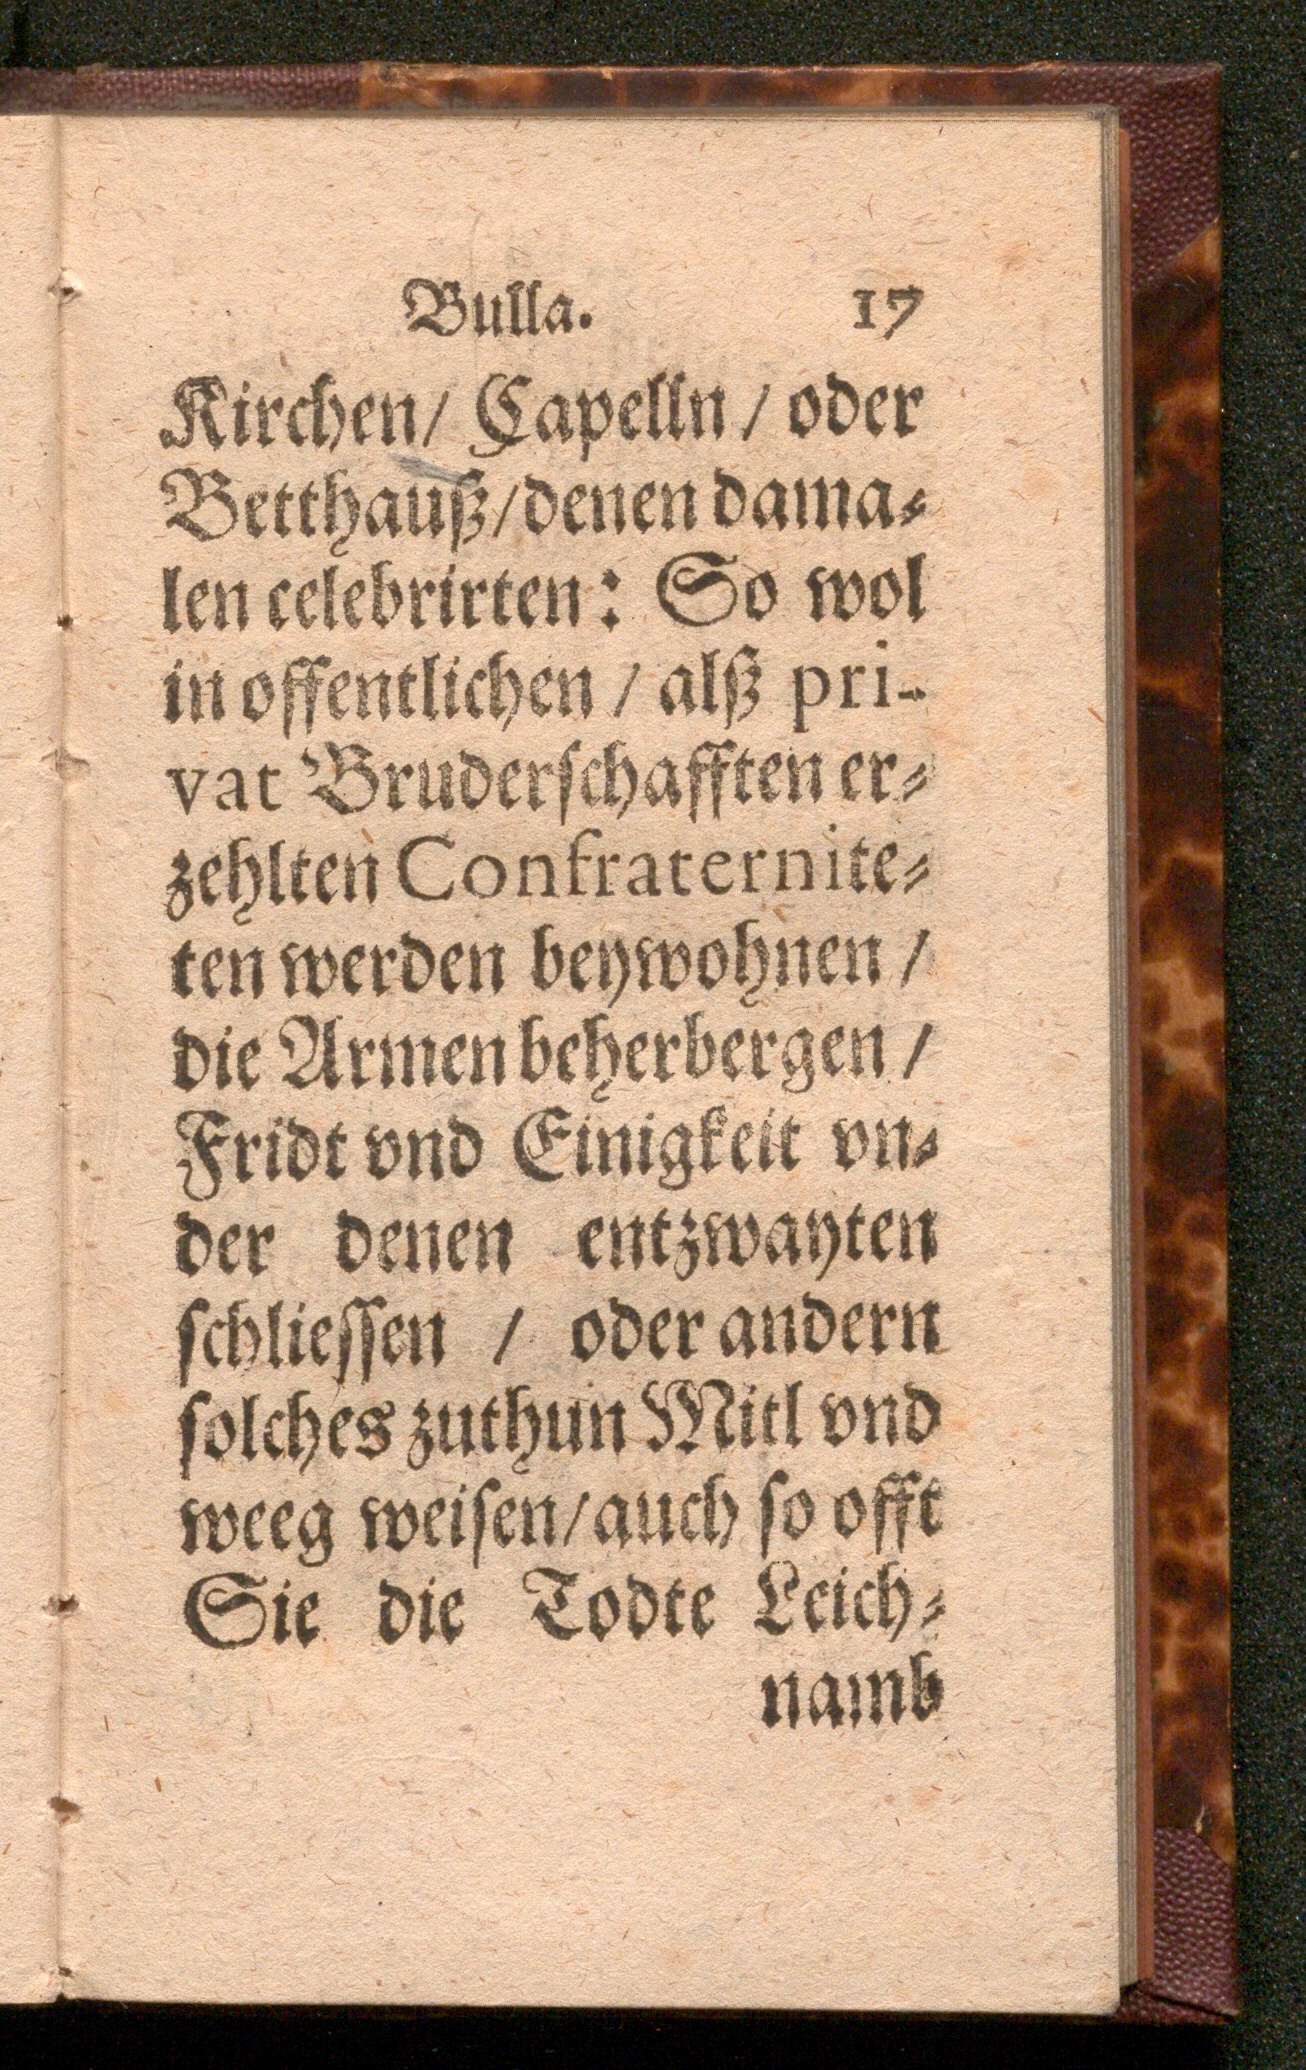 Bulla. 17
Kirchen/ Capelln / oder
Betthauß/denen dama⸗
len celebrirten: So wol
in offentlichen / alß pri-
vat Bruderschafften er⸗
zehlten Confraternite⸗
ten werden beywohnen /
die Armen beherbergen /
Fridt vnd Einigkeit vn⸗
der denen entzwayten
schliessen / oder andern
solches zuthun Mitl vnd
weeg weisen/auch so offt
Sie die Todte Leich⸗
namb